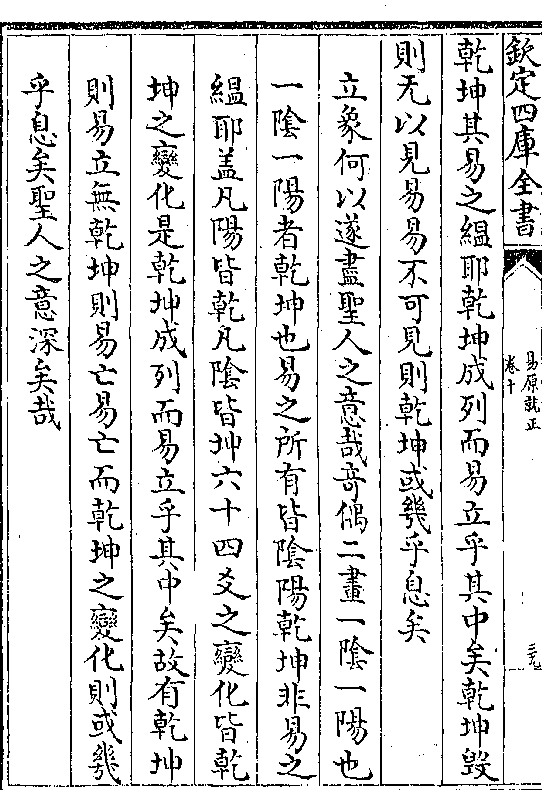 欽定四庫全書
易原就正
卷十
乾坤其易之緼耶乾坤成列而易立乎其中矣乾坤毀
則无以見易易不可見則乾坤或幾乎息矣
立象何以遂盡聖人之意哉竒偶二畫一陰一陽也
一陰一陽者乾坤也易之所有皆陰陽乾坤非易之
緼耶盖凡陽皆乾凡陰皆坤六十四爻之變化皆乾
坤之變化是乾坤成列而易立乎其中矣故有乾坤
則易立無乾坤則易亡易亡而乾坤之變化則或幾
乎息矣聖人之意深矣哉